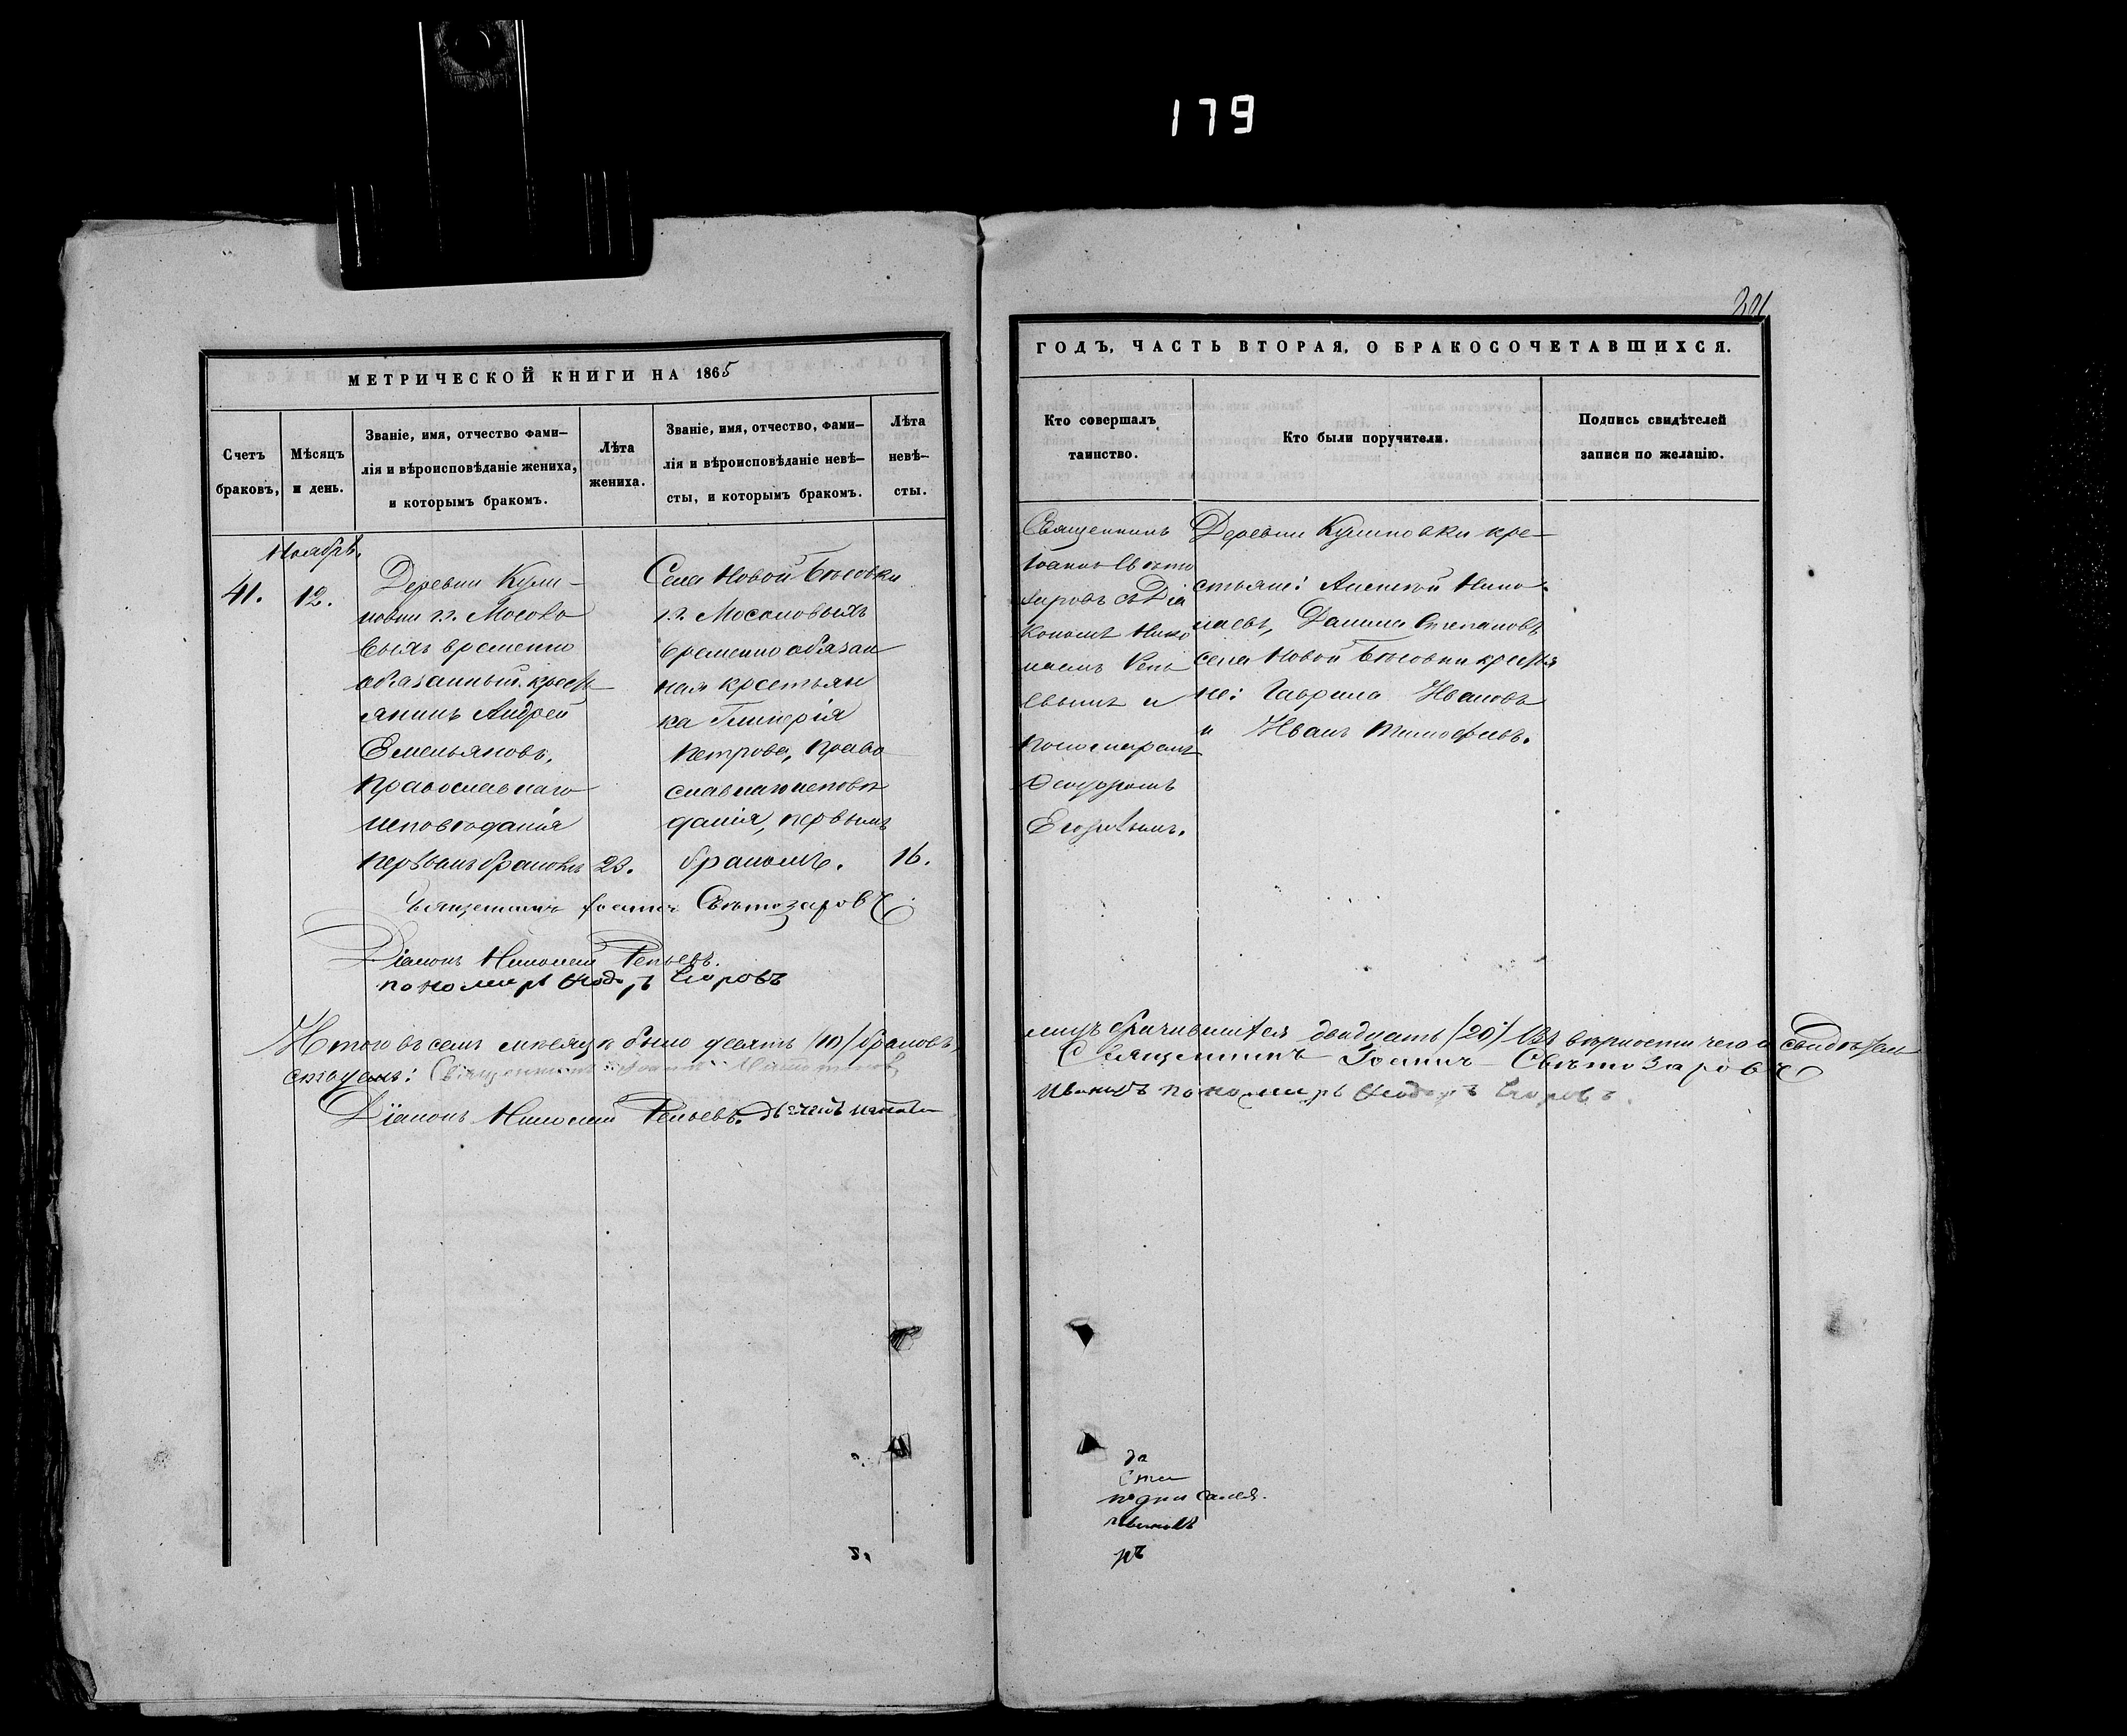 179
МЕТРИЧЕСКОЙ КНИГИ НА 1865
Счетъ браковъ,
Мѣсяцъ и день.
Званіе, имя, отчество фами-
лія и вѣроисповѣданіе жениха,
и которымъ бракомъ.
Лѣта жениха.
Званіе, имя, отчество, фами-
лія и вѣроисповѣданіе невѣ-
сты, и которымъ бракомъ.
Лѣта невѣ-
сты.
Ноябрь.
41.
12.
Деревни Кули-
ковки гг. Мосоло
выхъ временно
обязанный крест
янинъ Андрей
Емельяновъ,
православнаго
исповѣданія
первымъ бракомъ
23.
Села Новой Бѣсовки
гг. Мосоловыхъ
временно обязан
ная крестьян
ка Гликерія
Петрова, право
славнаго исповѣ
данія, первымъ
бракомъ.
16.
Священникъ Іоаннъ Свѣтозаровъ
Діаконъ Николай Репьевъ.
пономарь Ѳеодоръ Егоровъ
Итого въ семъ мѣсяцѣ было десять /10/ браковъ,
ствуемъ:
Діаконъ Николай Репьевъ.
ГОДЪ, ЧАСТЬ ВТОРАЯ, О БРАКОСОЧЕТАВШИХСЯ.
Кто совершалъ
таинство.
Кто были поручители.
Подпись свидѣтелей
записи по желанію.
Священникъ
Іоаннъ Свѣто
заровъ съ Діа
кономъ Нико
лаемъ Репь
евымъ и
пономаремъ
Ѳеодоромъ
Егоровымъ.
Деревни Куликовки кре-
стьяне: Алексѣй Нико-
лаевъ, Данила Степановъ
села Новой Бѣсовки крестья
не: Гаврила Ивановъ
и Иванъ Тимофеевъ.
лицъ брачившихся двадцать /20/ Въ вѣрности чего и свидѣтель
Священникъ Іоаннъ Свѣтозаровъ
пономарь Ѳеодоръ Егоровъ.
да
подписался.